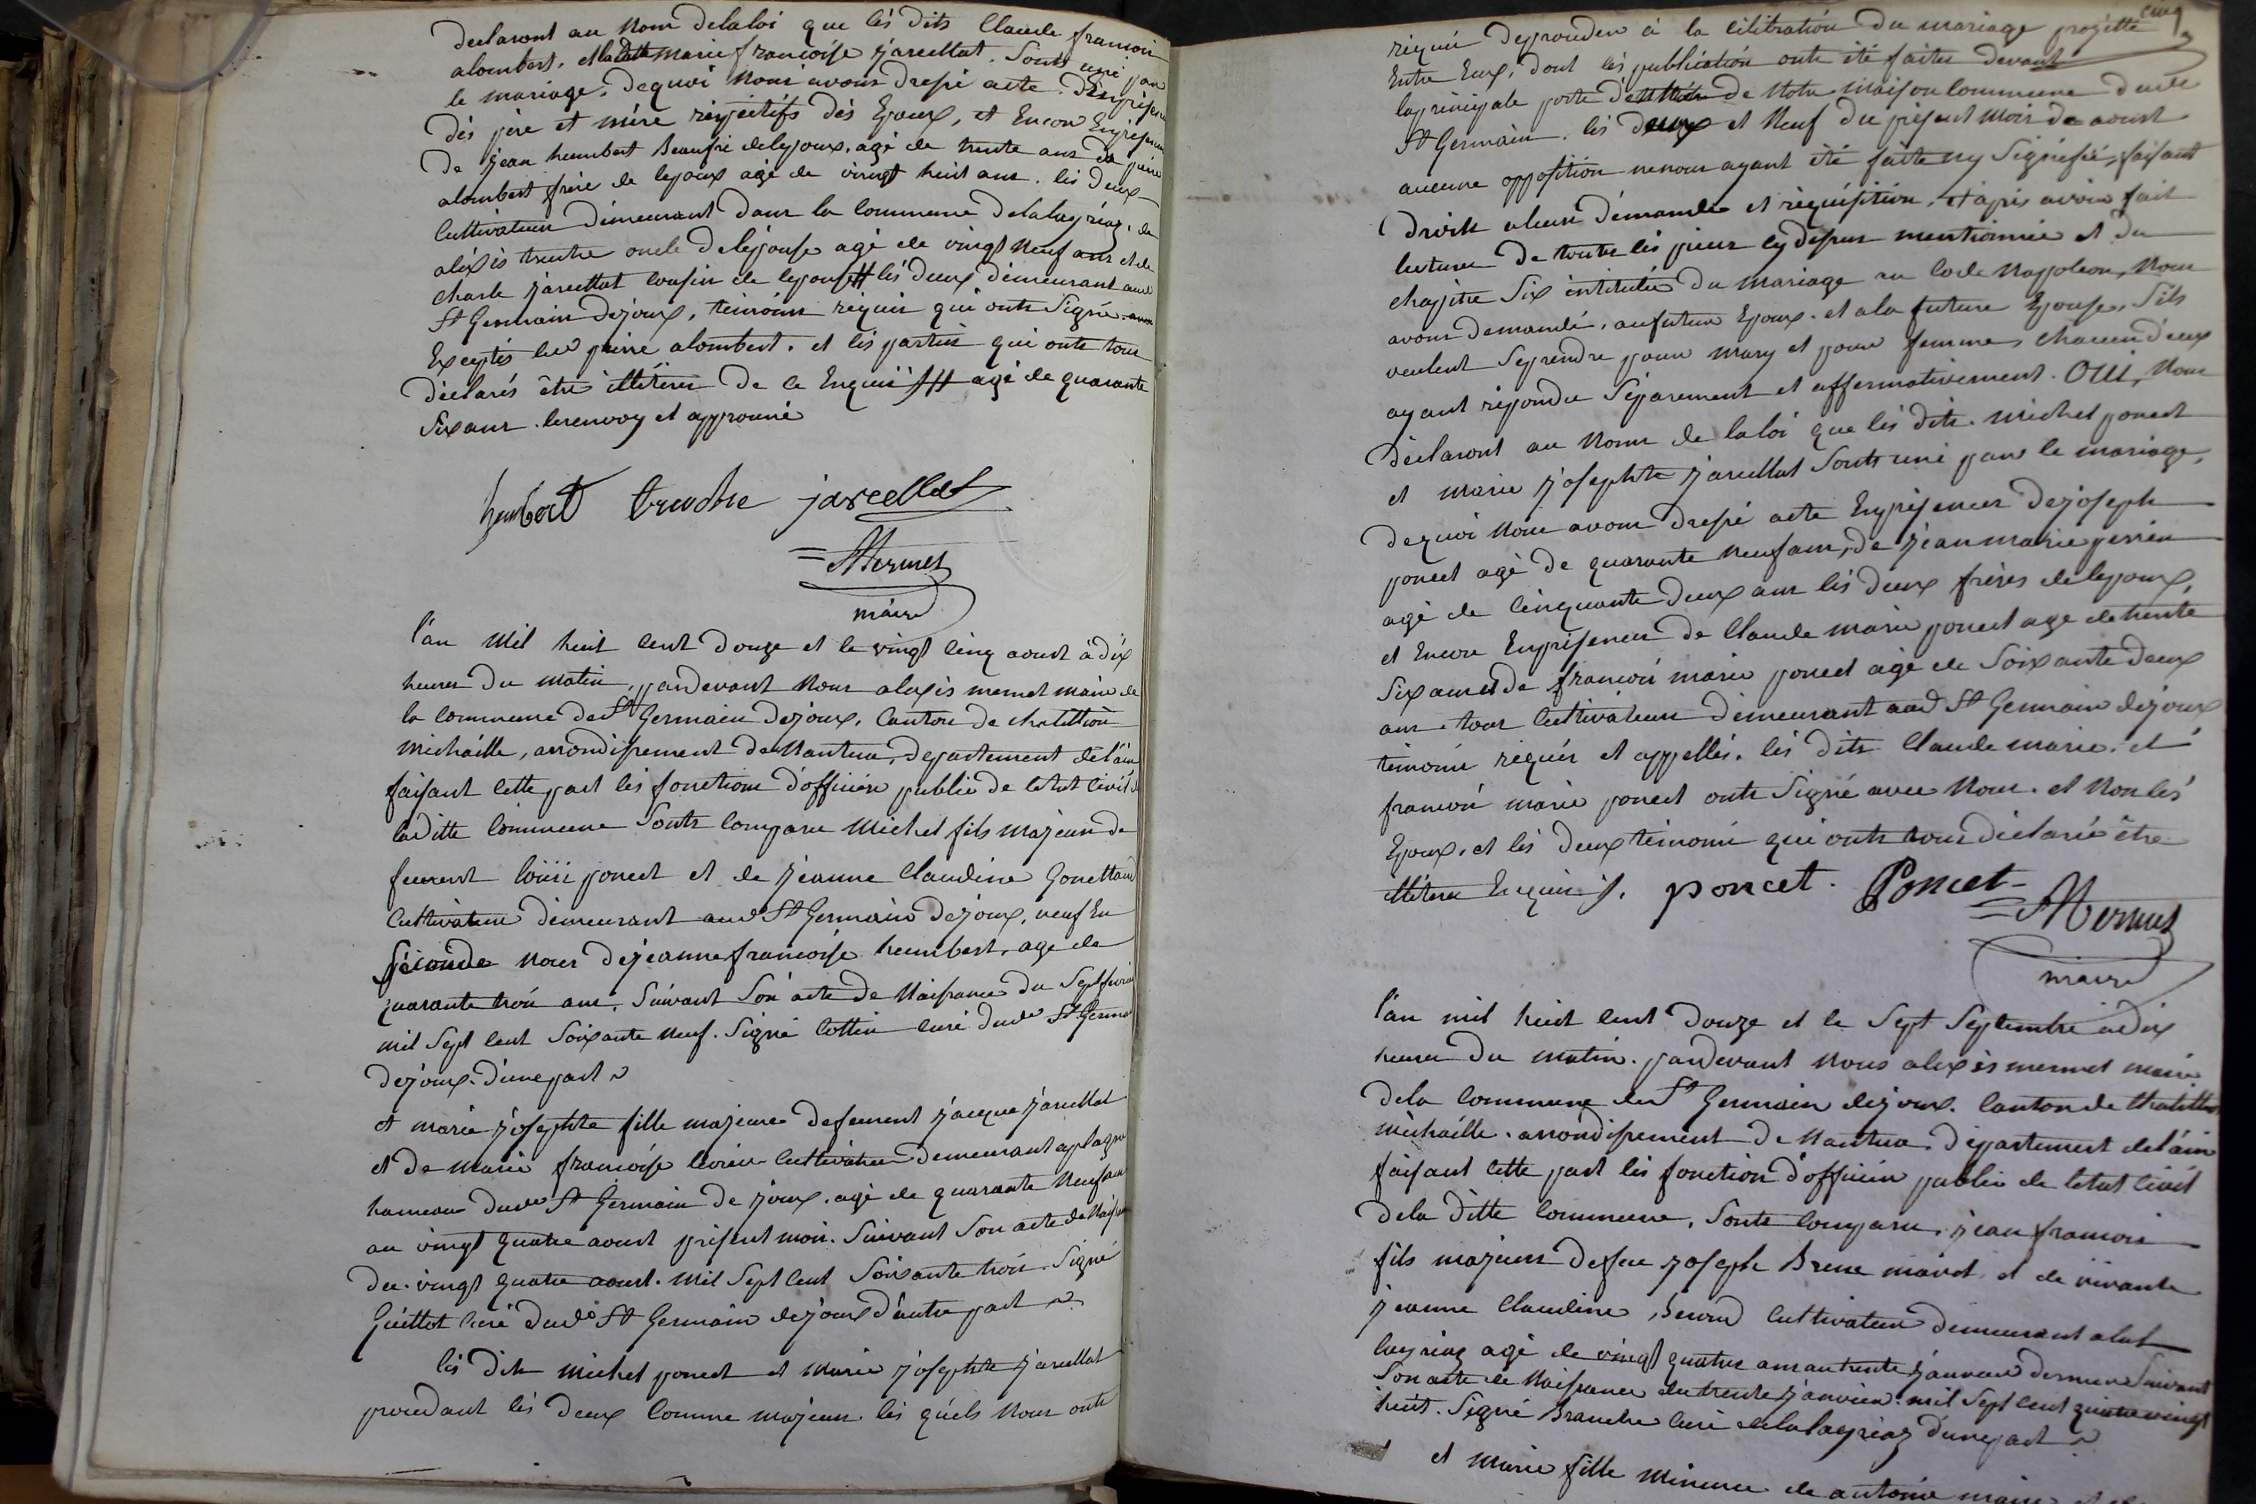 declaront au Nom delaloi que lés dits Claude francois
alombert, et laditte marie francoise jarcellat. Sonts uni par
le mariage, dequoi Nous avons dressé acte. Enprésence
dés pére et mére réspéctifs dés Epoux, et Encore Enprésence
de jean humbert Beaufré delepoux, agé de trente ans de piere
alombert frére de lepoux agé de vingt huit ans. lés deux
Cultivateurs démeurant dans la Commune delalayriaz, de
aléxis truche oncle delépouse agé de vingt Neuf ans et de
charle jarcellat cousin de lepouse # lés deux démeurant aud
St Germain dejoux, témoins réquis qui onts Signé avec
Exceptés led pierre alombert. et lés parties qui onts tous
déclarés étre illitéres de ce Enquis /# agé de quarante
Six ans. lerenvoy et approuvé
humbert truche jarcellat
AMermet
maire
l'an Mil huit Cent douze et le vingt Cinq aoust à dix
heures du matin, pardevant Nous aléxis mermet maire de
la Commune de St Germain dejoux, Canton de chatillon
michaille, arrondissement de Nantua, departement de l'ain
faisant cette part lés fonctions d'officiér public de letat Civil de
laditte Commune Sonts Comparu Michel fils majeur de
feu louis poncet et de jeanne Claudine Gonettand
Cultivateur démeurant aud St Germain dejoux, veuf En
séconde Noces dejeannefrancoise humbert, age de
quarante trois ans, Suivant Son acte de Naissance du Sept fevrier
mil Sept Cent Soixante Neuf. Signé Cottin curé dud St Germain
dejoux. d'une part
et marie jósephte fille majeure defeu jacque jarcellat
et de marie francoise Cultivateur demeurant aplagne
hameau dud St Germain de joux. agé de quarante Neuf ans
au vingt quatre aoust présent mois. Suivant Son acte de Naissance
du vingt quatre aoust. mil Sept Cent Soixante trois. Signé
Guittot Curé dud St Germain dejoux d'autre part
lés dits michel poncet et marie jósephte jarcellat
procédant lés deux Comme majeurs. lés quéls Nous onts
cinq
réquis deprocéder à la célébration du mariage projetté
Entre Eux, dont lés publication onts été faites devant
laprincipale porte d'entrée de Notre maison Commune dud
St Germain. lés deux et Neuf du présent mois de aoust
aucune opposition nenous ayant été faite ny Signéfié, faisant
droit aleur démande et réquisition, et aprés avoir fait
lecture de toutes lés piéces cy dessus mentionnée et du
chapitre Six intitulée du mariage au Code Napoleon, Nous
avons demandé, aufutur Epoux. et ala future Epouse, S'ils
veulent Seprendre pour mary et pour femme, chacun d'eux
ayant répondu Séparement et affermativement. OUI, Nous
déclaront au Nom de laloi que lés dits. michel poncet
et marie jósephte jarcellat Sonts uni par le mariage,
dequoi Nous avons dressé acte Enprésences dejoseph
poncet agé de quarante Neuf ans, de jean marie perrin
agé de Cinquante deux ans lés deux fréres delepoux,
et Encore Enprésence de Claude marie poncet age detrente
Six ans et de francois marie poncet agé de Soixante deux
ans. tous Cultivateurs démeurant aud St Germain dejoux
témoins réquis et appellés. lés dits Claude marie. et
francois marie poncet onts Signé avec Nous. et Non lés
Epoux, et lés deux témoins qui onts tous déclarés étre
illitéres Enquis /. poncet. Poncet
AMermet
maire
l'an mil huit Cent douze et le Sept Septembre à dix
heures du matin. pardevant Nous aléxis mermet maire
dela Commune de St Germain dejoux. Canton de Chatillon
michaille. arrondissement de Nantua. département del'ain
faisant Cette part lés fonction d'officier public de letat Civil
dela ditte Commune, Sonts Comparu, jean francois
fils majeur defeu joseph Brune mavot, et de vivante
jeanne Claudine, Cultivateur démeurant alal
layriaz agé de vingt quatre ans au trente janvier dernier Suivant
Son acte de Naissance du trente janvier mil Sept Cent quatre vingt
huit. Signé Branche Curé delalayriaz d'une part
et marie fille mineure de antoine